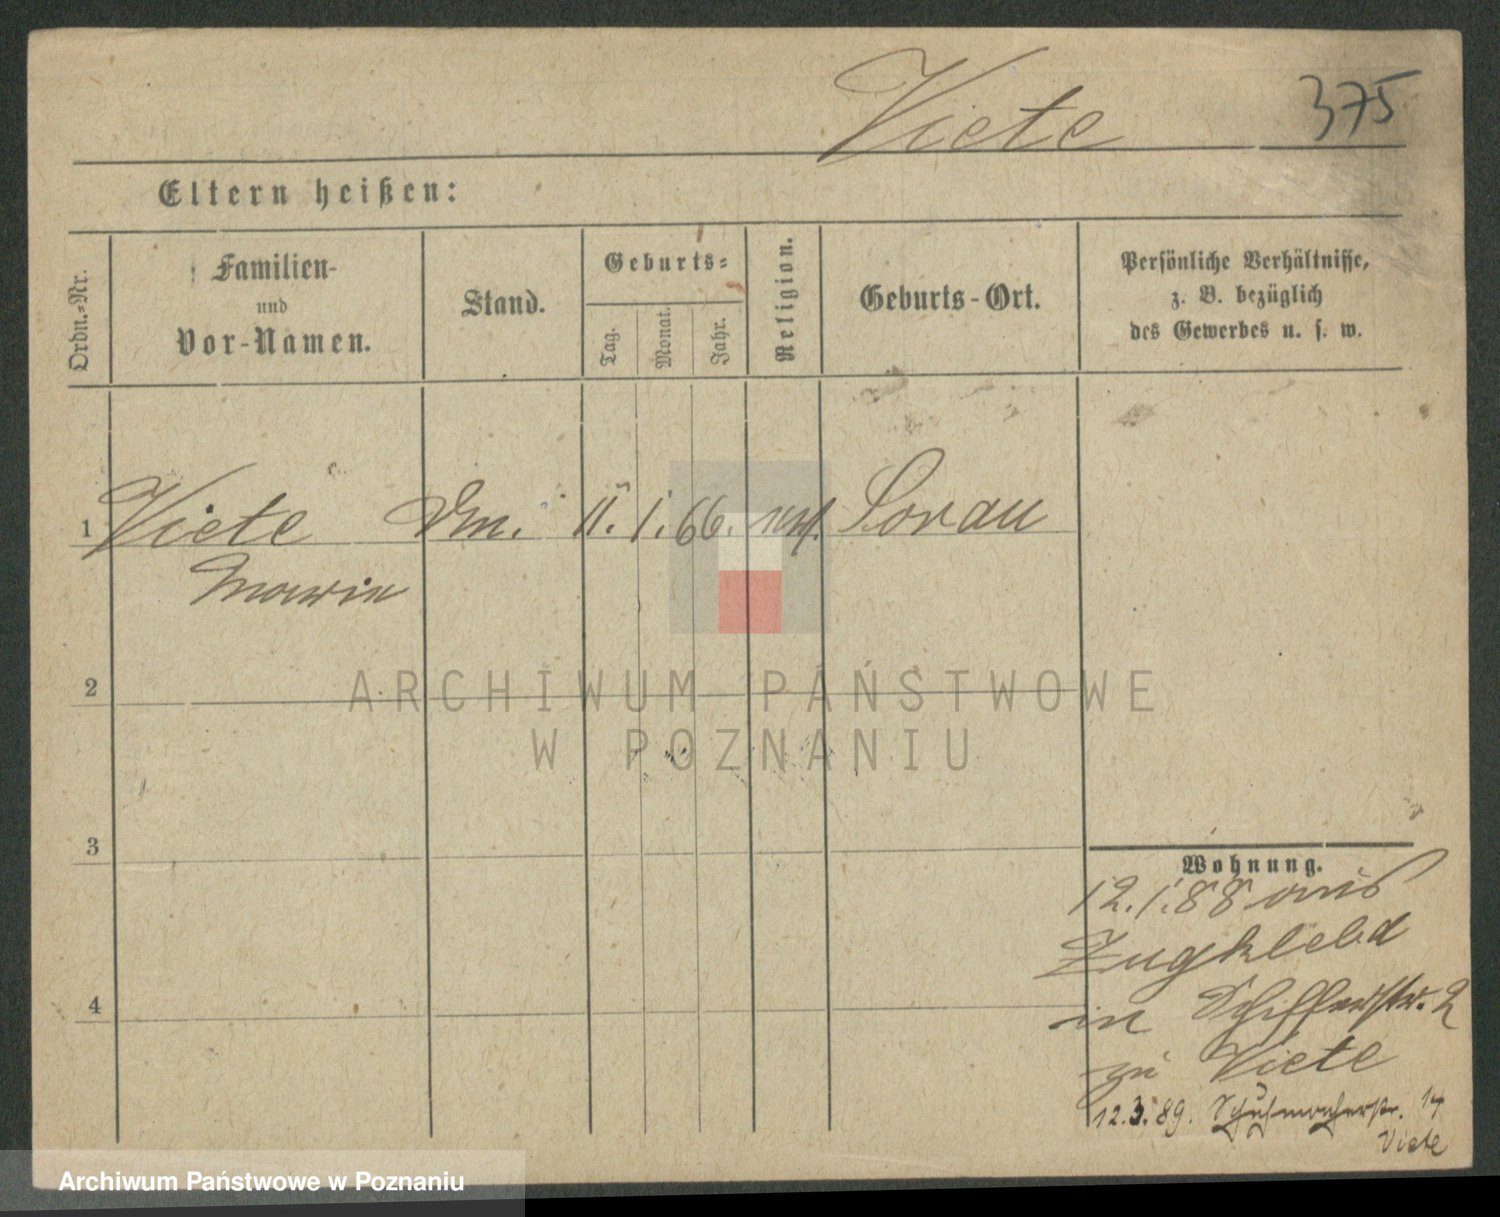 Viete
375
Eltern heißen:
Ordn.-Nr.
Familien-
und
Vor-Namen.
Stand.
Geburts-
Tag.
Monat.
Jahr.
Religion.
Geburts-Ort.
Persönliche Verhältnisse,
z. B. bezüglich
des Gewerbes u. s. w.
1 Viete 11. 1. 66. Sorau
Marie
2
ARCHIWUM PAŃSTWOWE
W POZNANIU
3
4
Wohnung.
12.1.88 aus
in Schifferstr. 2
zu Viete
12.3.89. Schuhmacherstr. 14
Viete
Archiwum Państwowe w Poznaniu